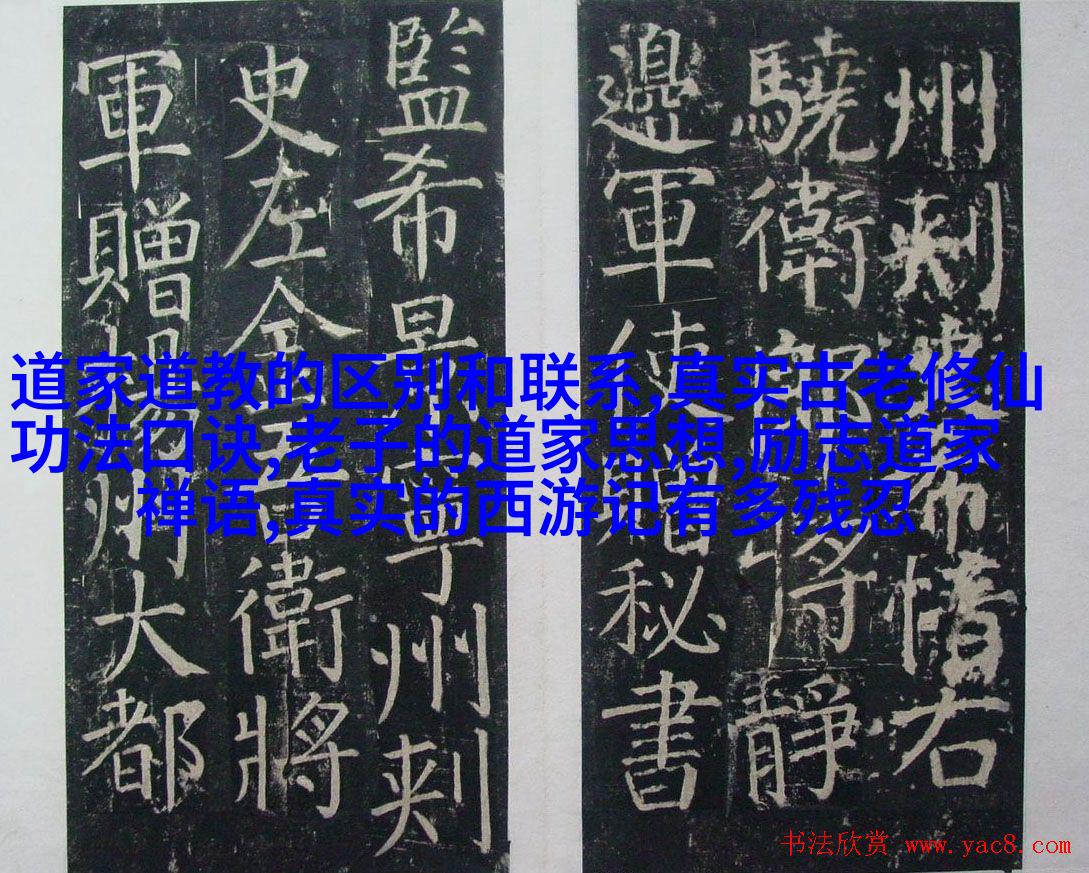 道家道教的区别和联系,真实古老修仙
功法口诀,老子的道家思想,励志道家
禅语,真实的西游记有多残忍
州刺史希愔右
驍衛郎將靜
邊軍使贈秘書
監希寧州刺
史左金吾衛將
軍贈揚州大都
书法欣赏 www.yac8.com